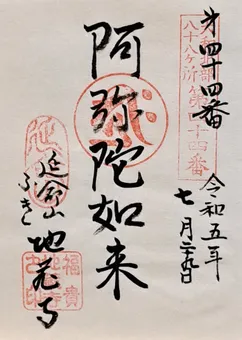 第四十四番
大和北部
八十八ヶ所第四十四番
令和五年
七月二十九日
阿弥陀如来
延命山
ふき
地蔵寺
福貴